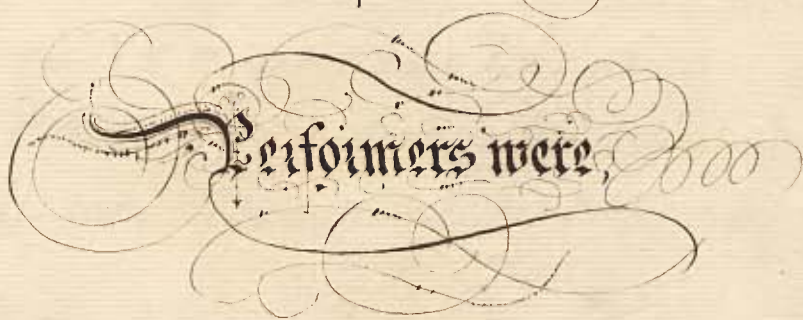 Performers were,